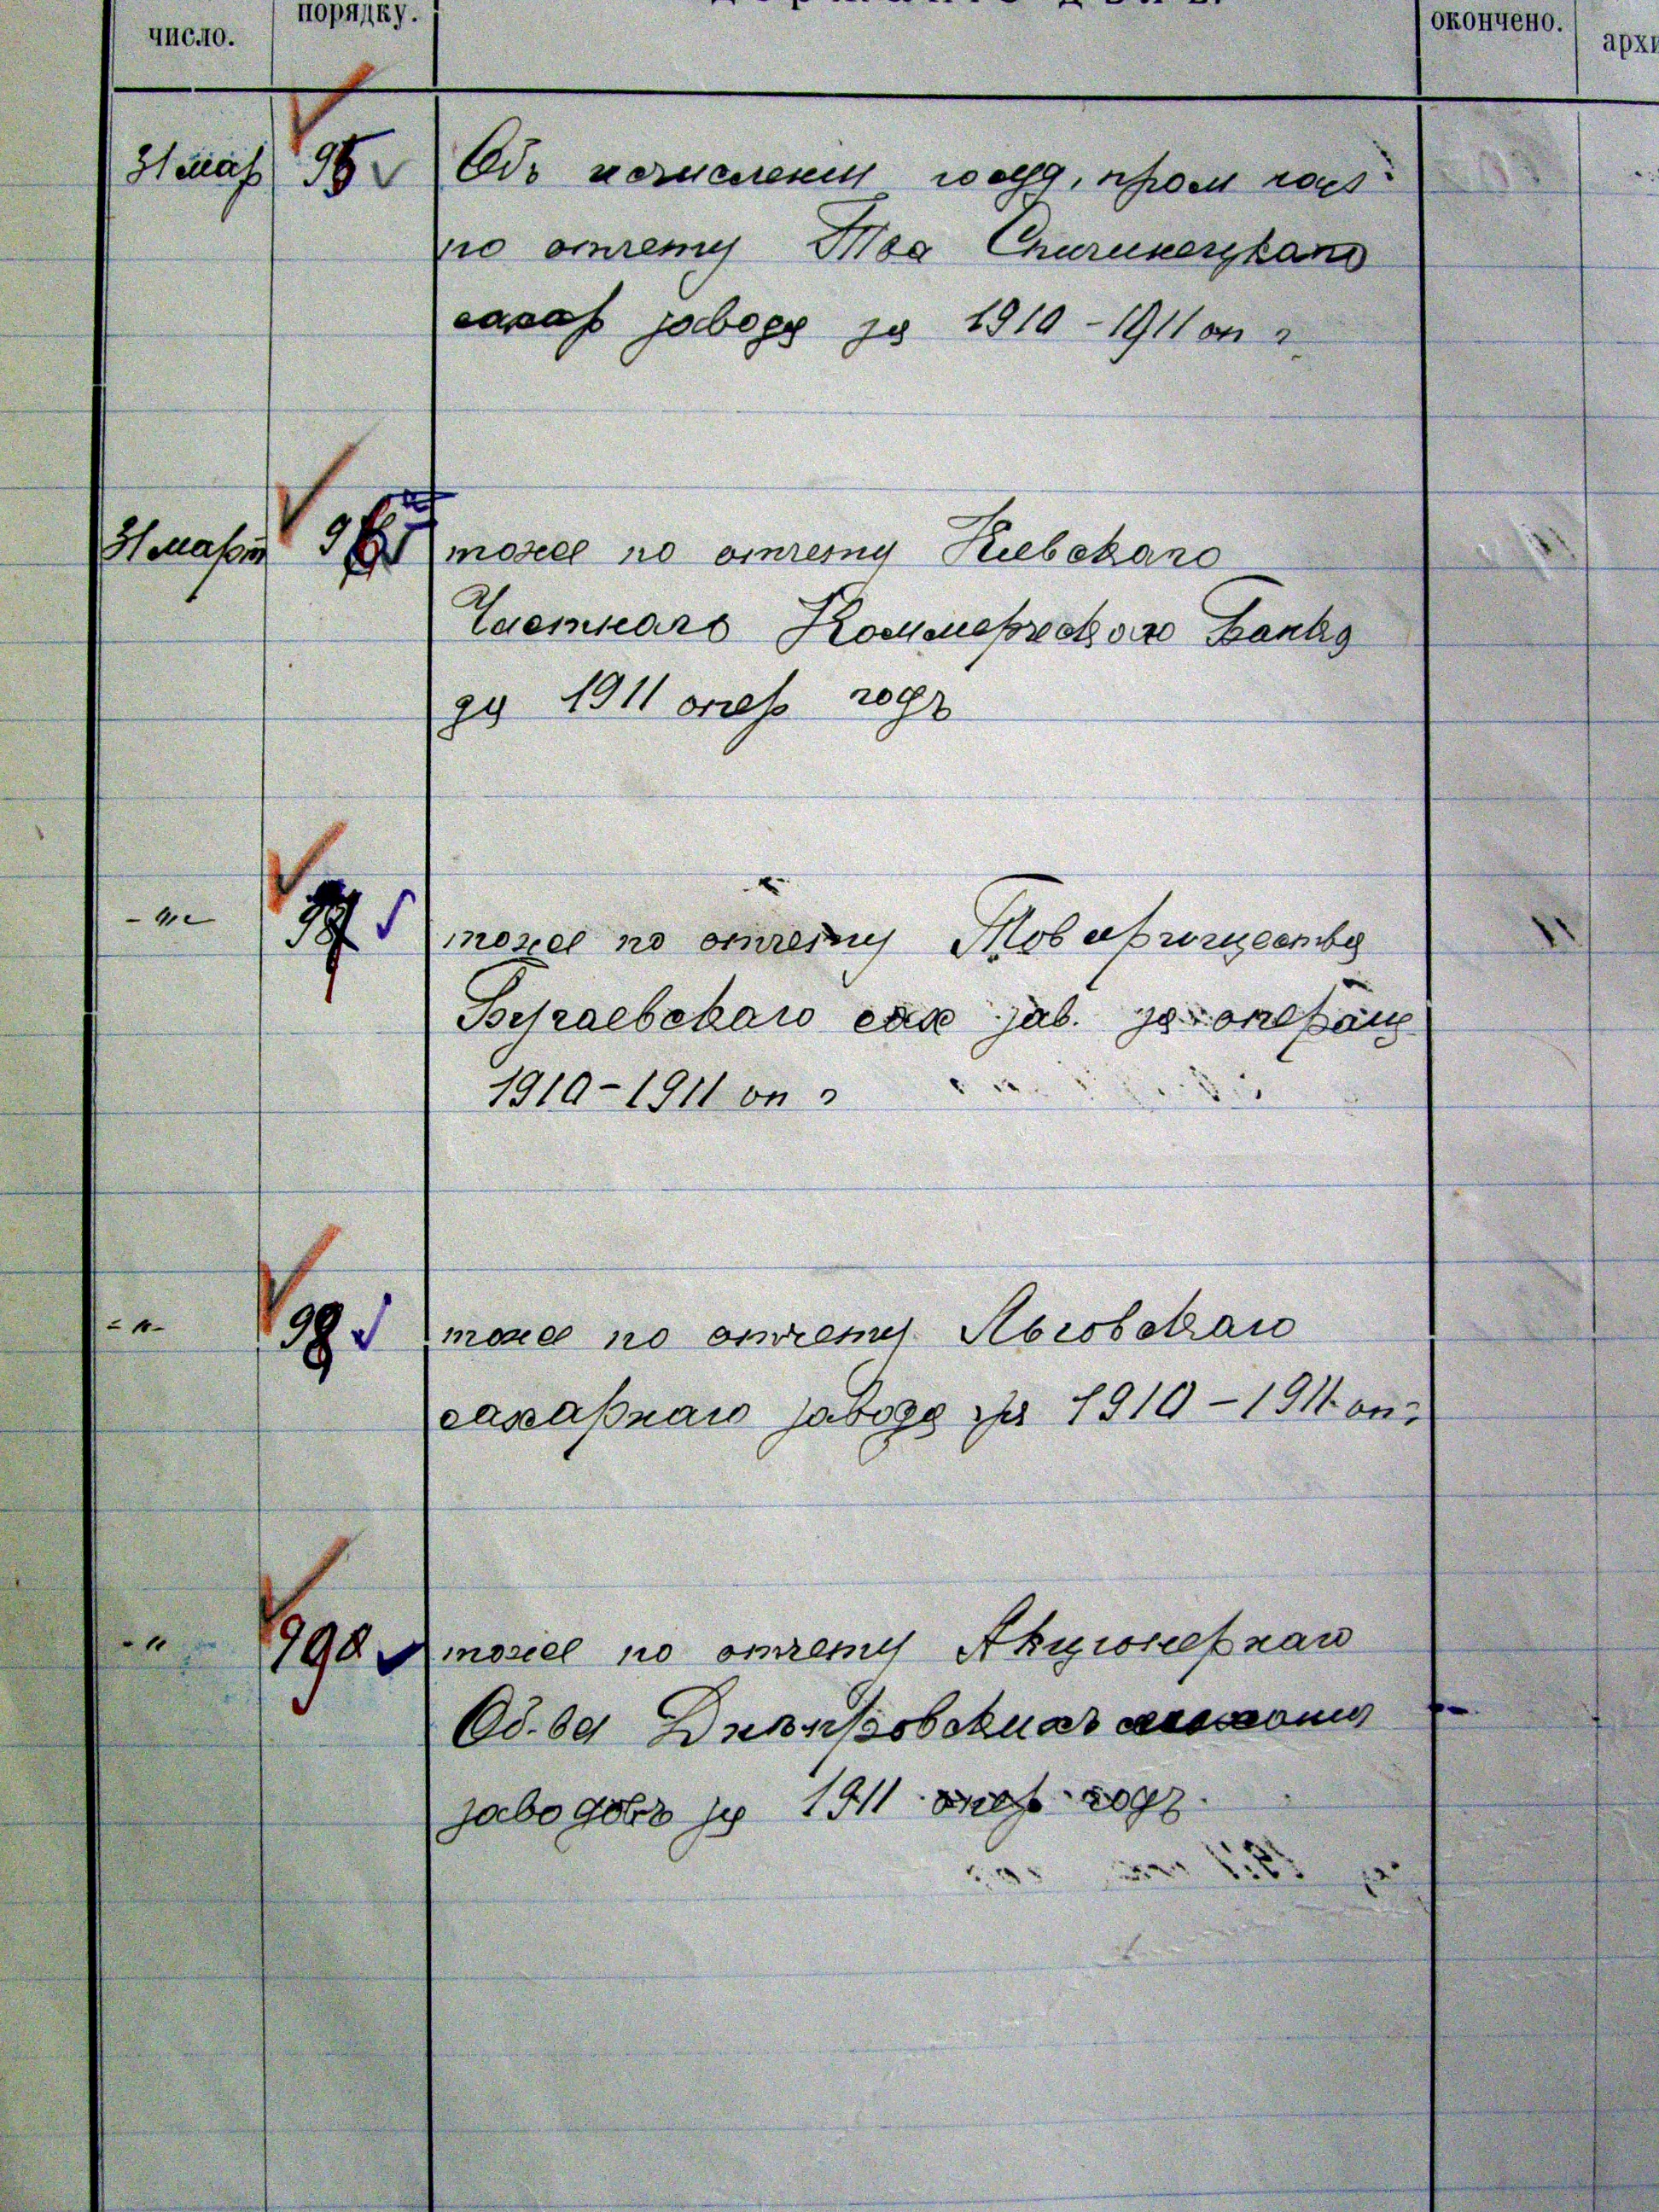 число.
порядку.
окончено.
31 мар 95 Объ исчислении госуд. пром нал
по отчету Тва Спичинецкаго
сахар завода за 1910-1911 оп г.
31 март 96 тоже по отчету Киевскаго
Частнаго Коммерческого Банка
за 1911 опер годъ
- " - 97 тоже по отчету Товарищества
Бугаевскаго сах зав. за операц
1910-1911 оп г
- " - 98 тоже по отчету Льговскаго
сахарнаго завода за 1910-1911 оп г
- " 99 тоже по отчету Акционернаго
Об-ва Днѣпровскихъ
заводовъ за 1911 опер годъ.